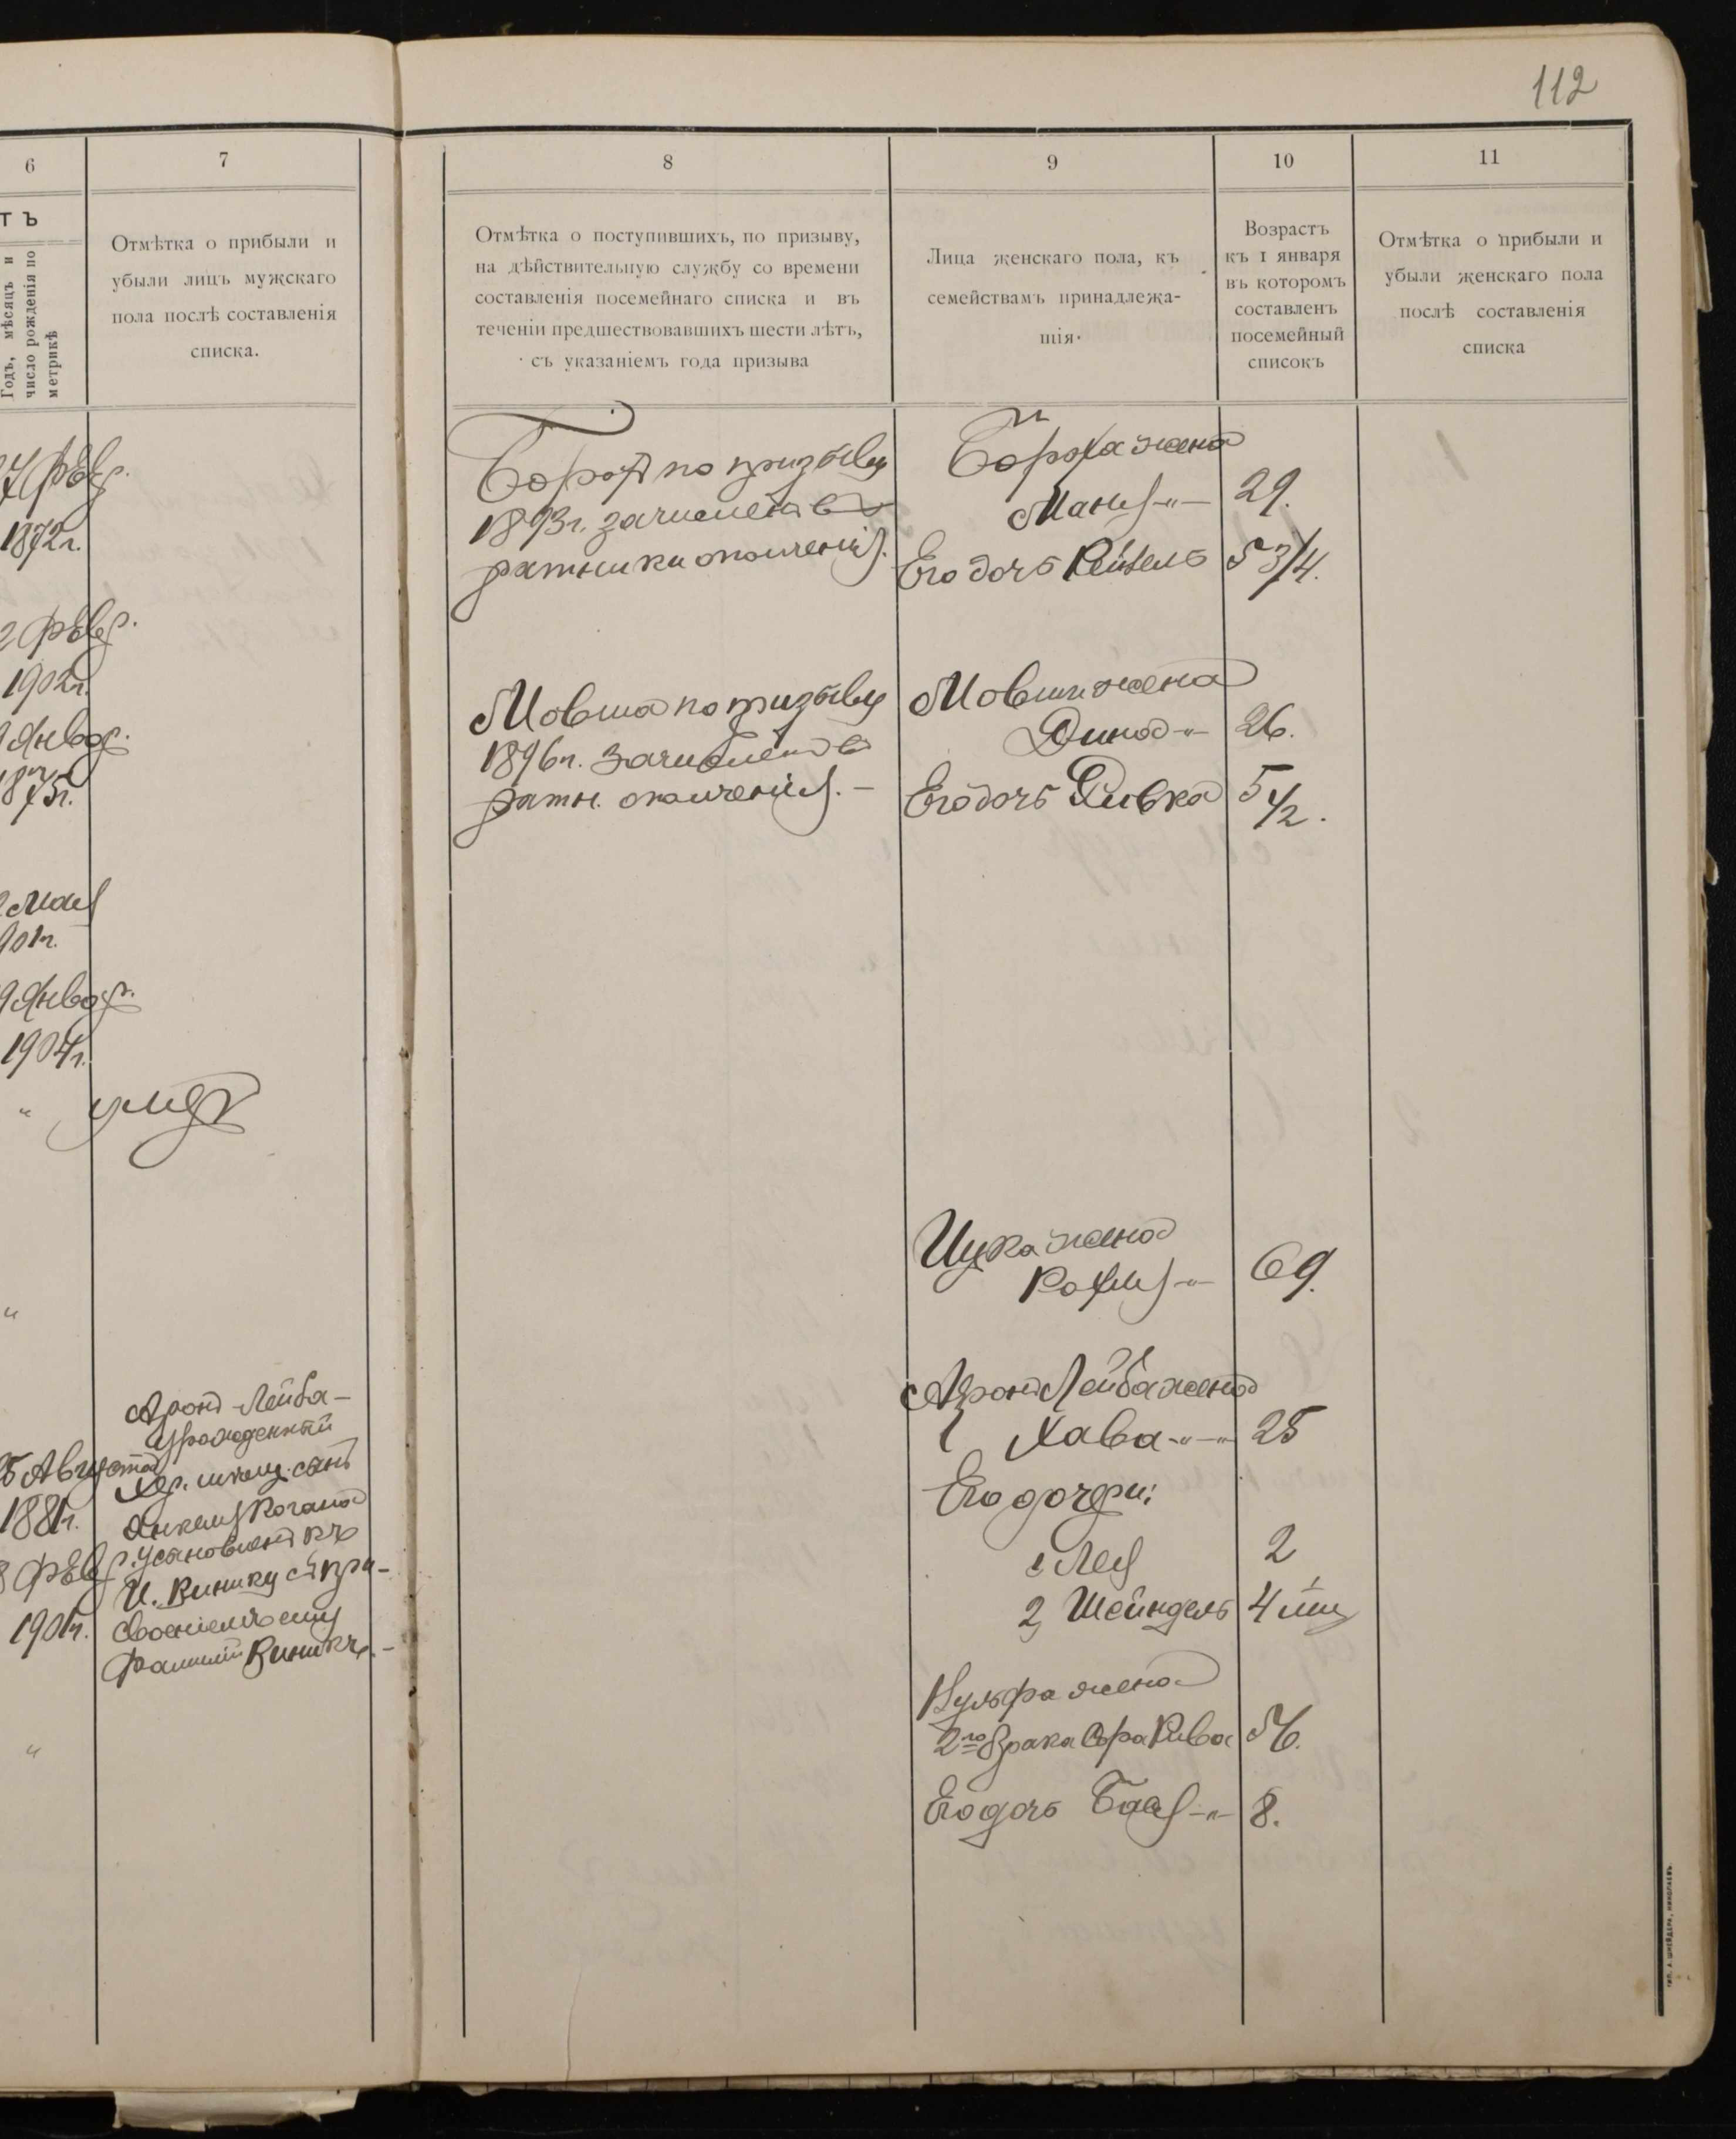 112
6
ТЪ
Годъ, мѣсяцъ и
число рожденія по
метрикѣ
7 Февр.
1872 г.
2 Февр.
1902 г.
Январ.
Мая
901 г.
9 Январ.
1904 г.
"
"
25 Августа
1881 г.
8 Февр.
1901 г.
"
7
Отмѣтка о прибыли и
убыли лицъ мужскаго
пола послѣ составленія
списка.
умеръ
Аронъ-Лейба-
урожденный
Хер. мѣщ. сынъ
Янкеля Когана
Установленъ къ
И. Винику съ при-
своеніемъ ему
фамиліи Виникъ.-
8
Отмѣтка о поступившихъ, по призыву,
на дѣйствительную службу со времени
составленія посемейнаго списка и въ
теченіи предшествовавшихъ шести лѣтъ,
съ указаніемъ года призыва
Борохъ по призыву
1893 г. зачисленъ въ
ратники ополченія.
Мовша по призыву
1896 г. зачисленъ въ
ратн. ополченія.-
9
Лица женскаго пола, къ
семействамъ принадлежа-
щія.
Бороха жена
Маня -"-
Его дочь Рейзель
Мовши жена
Дина -"-
Его дочь Ривка
Ицка жена
Рахиля -"-
Аронъ Лейба жена
Хава -"-"
Его дочери:
1 Лея
2, Шейндель
Вульфа жена
2го брака Сра Рива
Его дочь Бася -"-
10
Возрастъ
къ 1 января
въ которомъ
составленъ
посемейный
списокъ
29.
5 3/4.
26.
5 1/2.
69.
25
2
4 мц
56.
8.
11
Отмѣтка о прибыли и
убыли женскаго пола
послѣ составленія
списка
ТИП. А. ШНЕЙДЕРА, НИКОЛАЕВЪ.